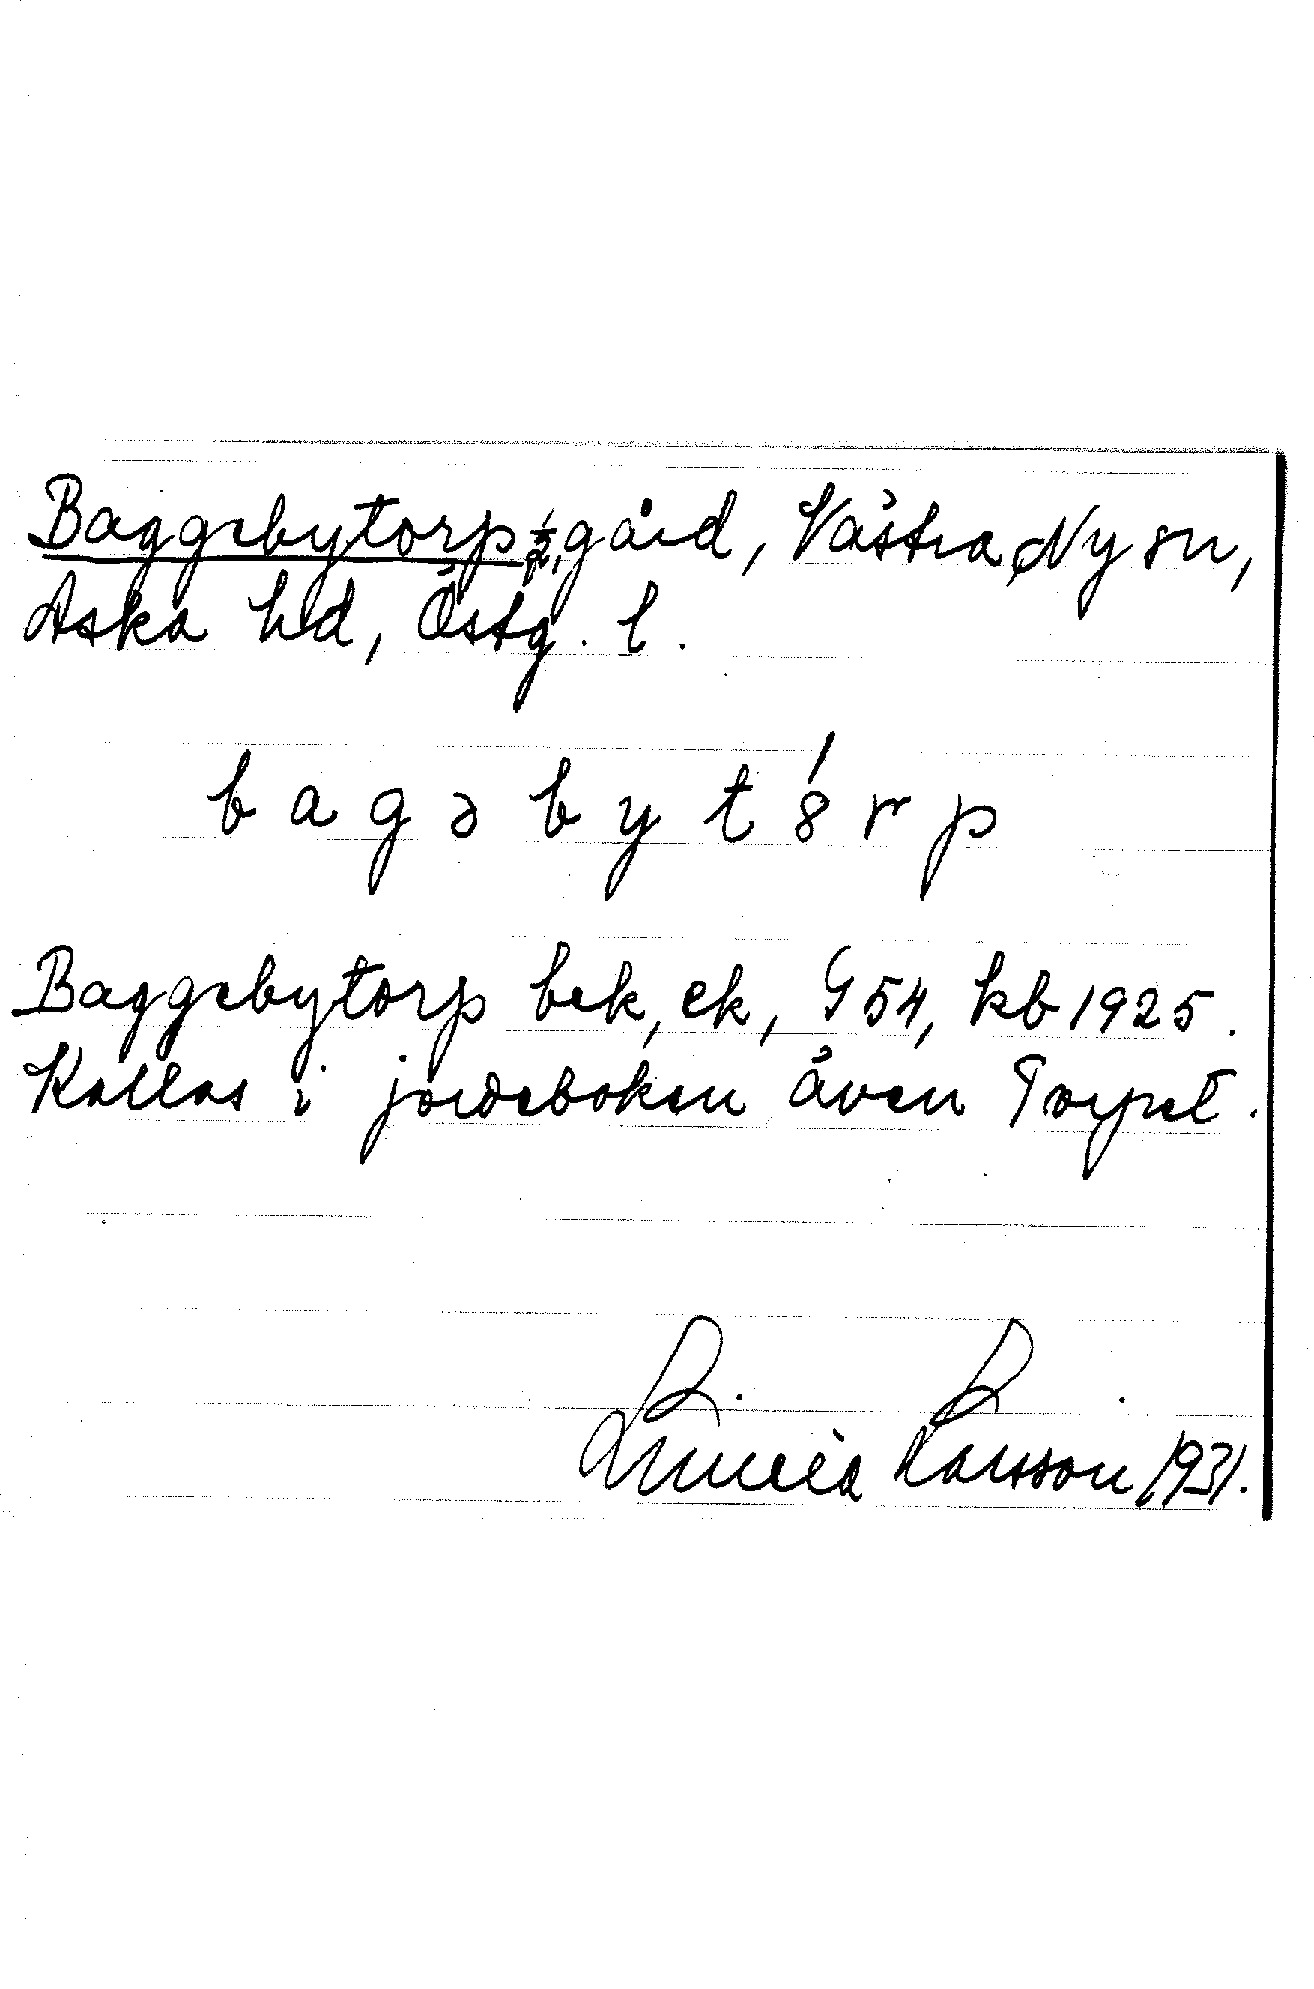 Baggebytorp ½ gård, Västra Ny sn,
Aska hd, Östg. l.
b a g ə b y t 8́ r p
Baggebytorp bek, ek, G 54, kb 1925.
Kallas i jordeboken även Torpet.
Linnéa Larsson 1931.